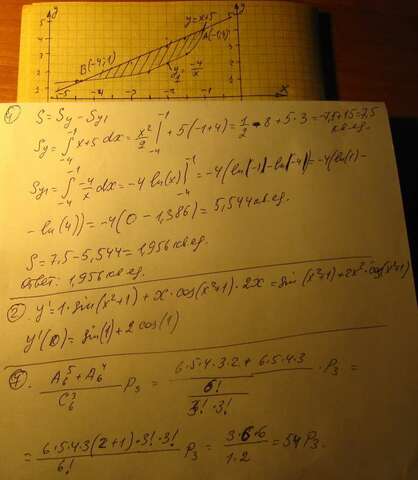 y
y
y=x+5
A(-1;4)
B(-4;1)
y₁=-4/x
-5 -4 -3 -2 -1 x
1) S = Sy - Sy₁
Sy = ∫₋₄⁻¹ x+5 dx = x²/2 |₋₄⁻¹ + 5(-1+4) = 1/2 - 8 + 5·3 = -7,5+15=7,5 кв.ед.
Sy₁ = ∫₋₄⁻¹ -4/x dx = -4 ln(x) |₋₄⁻¹ = -4(ln|-1| - ln|-4|) = -4(ln(1) -
- ln(4)) = -4(0 - 1,386) = 5,544 кв.ед.
S = 7,5 - 5,544 = 1,956 кв.ед.
Ответ: 1,956 кв.ед.
2. y' = 1·sin(x²+1) + x·cos(x²+1)·2x = sin(x²+1)+2x²·cos(x²+1)
= sin(1) + 2cos(1)
(A₆⁵ + A₆⁴)/C₆³ P₃ = (6·5·4·3·2 + 6·5·4·3)/(6!/(3!·3!)) · P₃ =
= (6·5·4·3(2+1)·3!·3!)/6! P₃ = (3·6·6)/(1·2) = 54 P₃.